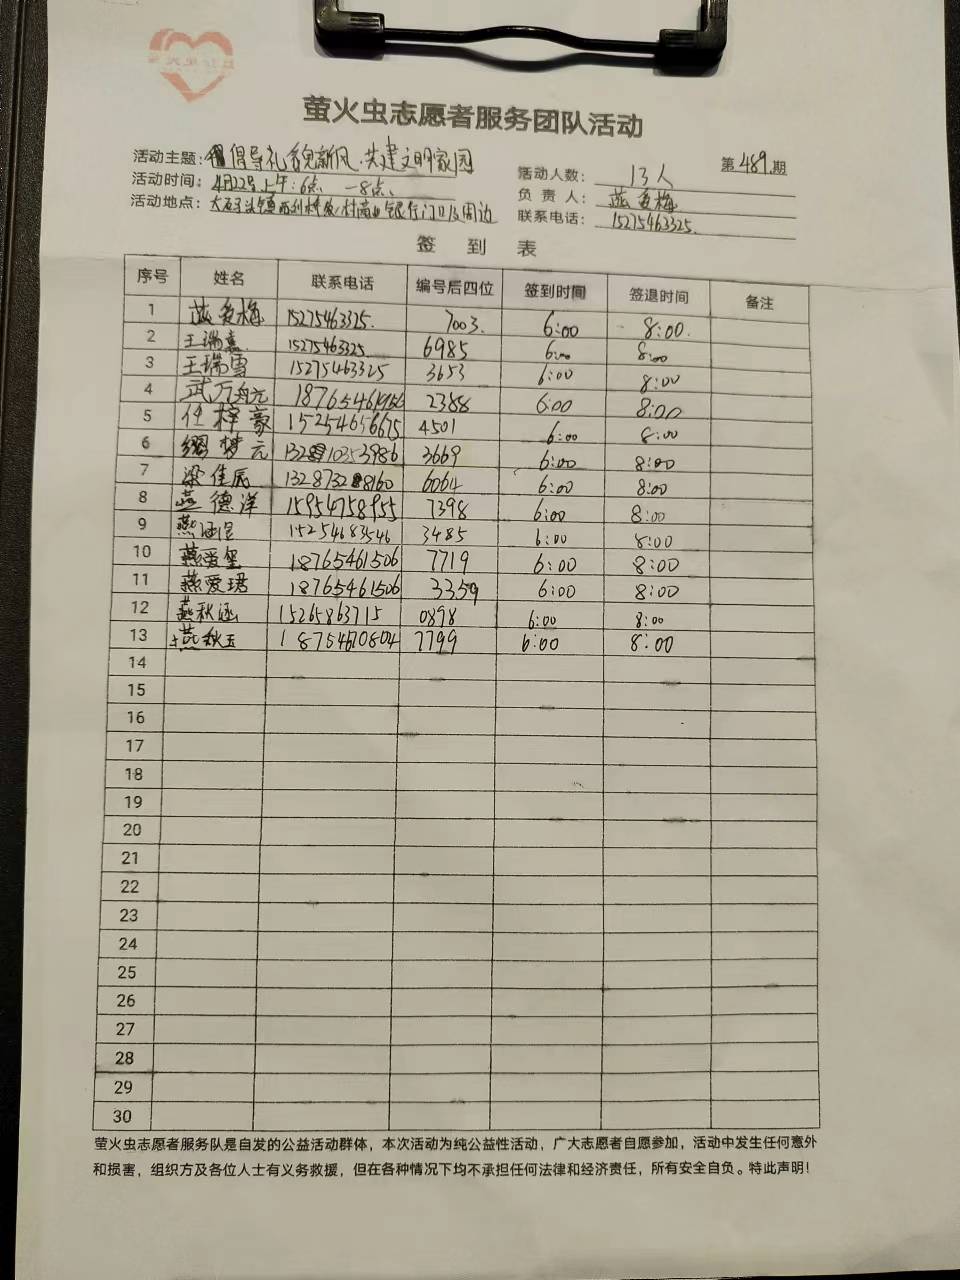 萤火虫志愿者服务团队活动
活动主题: 倡导礼貌新风.共建文明家园
第489.期
活动时间: 4月22号上午:6点 —8点
活动人数: 13人
负责人:
活动地点: 村商业银行门口及周边
联系电话: 15275463325.
签到表
序号 姓名 联系电话 编号后四位 签到时间 签退时间 备注
1 15275463325. 7003. 6:00 8:00.
2 王瑞熹 15275463325. 6985 6:00 8:00
3 王瑞雪 15275463325 3653 6:00 8:00
4 武万 2388 6:00 8:00
5 任梓豪 15254656675 4501 6:00 8:00
6 梦元 3669 6:00 8:00
7 梁佳辰 6064 6:00 8:00
8 燕德洋 15954758955 7398 6:00 8:00
9 燕涵 15254683546 3485 6:00 8:00
10 燕爱玺 18765461506 7719 6:00 8:00
11 燕爱珺 18765461506 3359 6:00 8:00
12 燕秋涵 15265863715 0898 6:00 8:00
13 燕秋玉 18754670804 7799 6:00 8:00
14
15
16
17
18
19
20
21
22
23
24
25
26
27
28
29
30
萤火虫志愿者服务队是自发的公益活动群体，本次活动为纯公益性活动，广大志愿者自愿参加，活动中发生任何意外
和损害，组织方及各位人士有义务救援，但在各种情况下均不承担任何法律和经济责任，所有安全自负。特此声明!